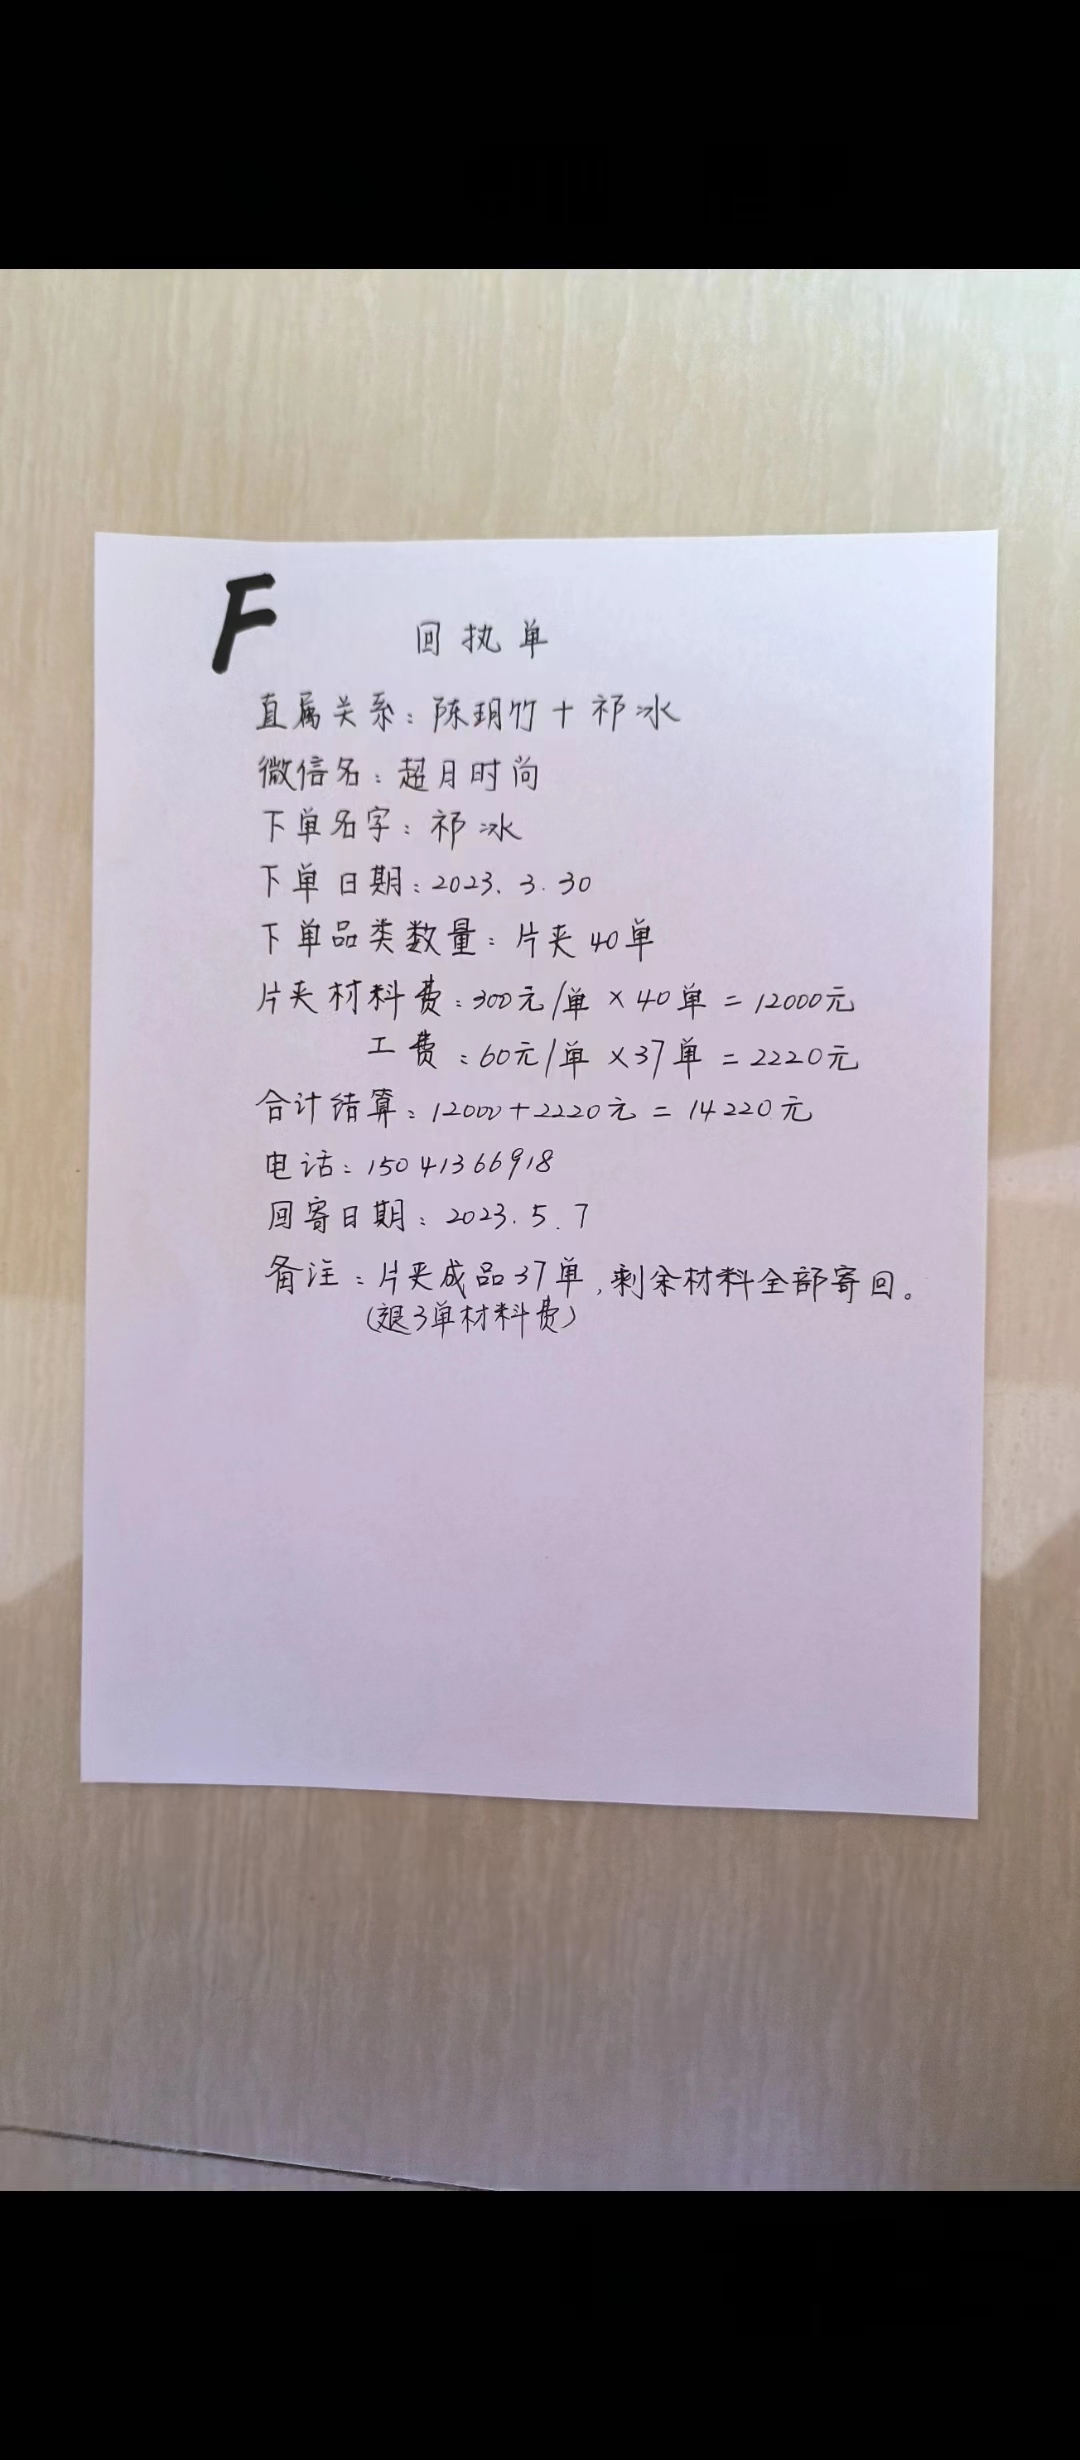 F
回执单
直属关系：陈玥竹+祁冰
微信名：超月时尚
下单名字：祁冰
下单日期：2023.3.30
下单品类数量：片夹40单
片夹材料费：300元/单×40单=12000元
工费：60元/单×37单=2220元
合计结算：12000+2220元=14220元
电话：15041366918
回寄日期：2023.5.7
备注：片夹成品37单，剩余材料全部寄回。
（退3单材料费）